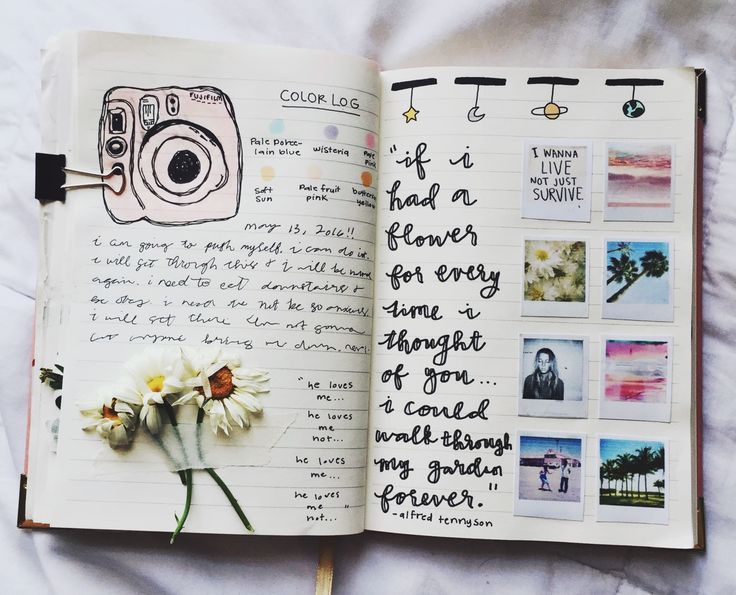 FUJIFILM
COLOR LOG
Pale porce-
lain blue
wisteria
pink
Soft
Sun
Pale fruit
pink
buttercup
yellow
may 13, 2016!!
i am going to push myself. i can do it.
i will get through this & i will be
again. i need to eat downstairs &
be okay. i need to not be so anxious.
i will get there & im not gonna
let anyone bring me down.
"he loves
me...
he loves
me
not...
he loves
me...
he loves
me "
not...
"if i
had a
flower
for every
time i
thought
of you...
i could
walk through
my garden
forever."
-alfred tennyson
I WANNA
LIVE
NOT JUST
SURVIVE.